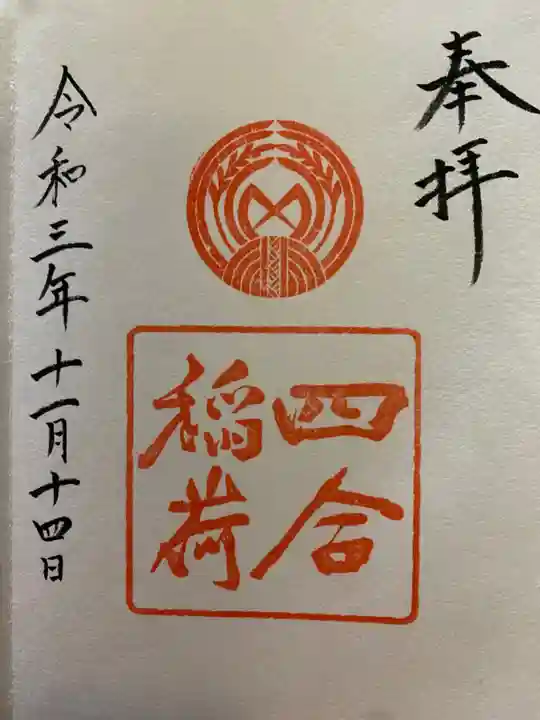 奉拝
四合
稲荷
令和三年十一月十四日